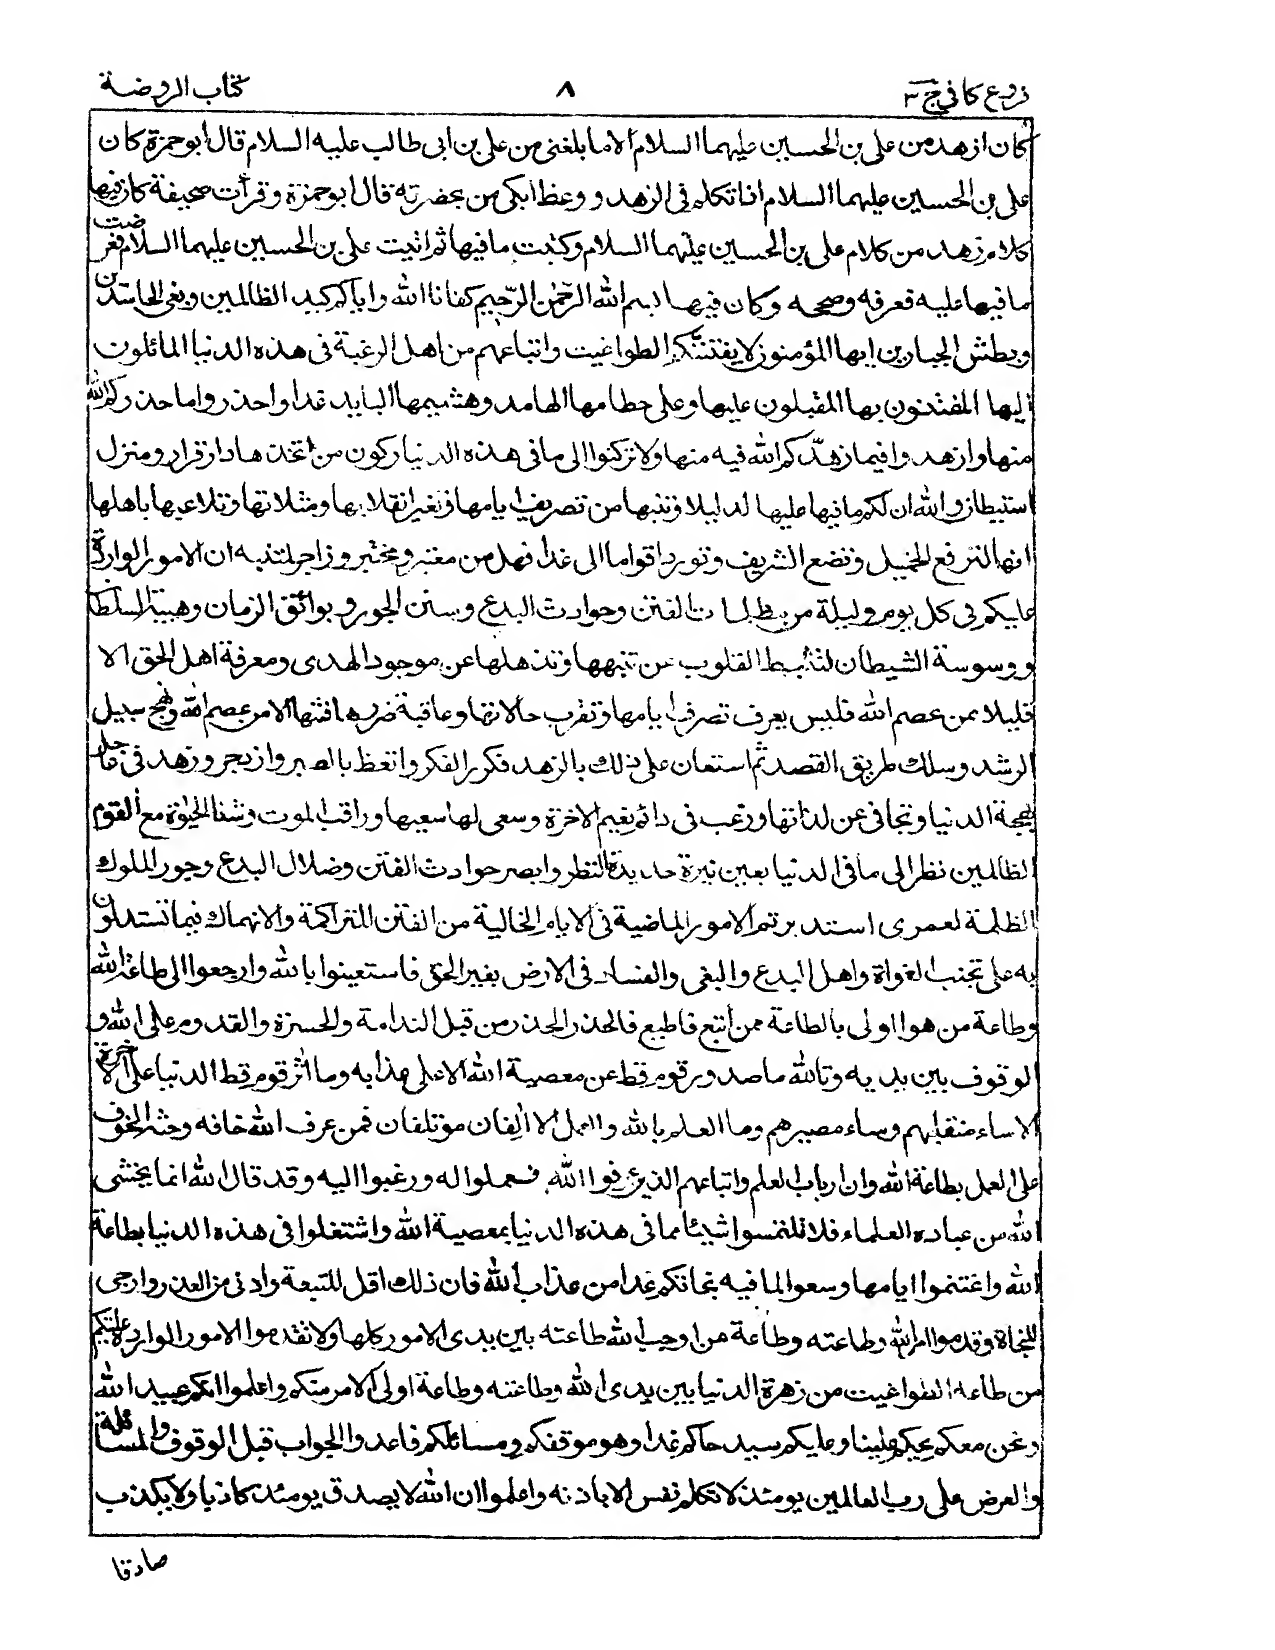 فروع كافي ج ٣ ٨ كتاب الروضة
كان ازهد من علي بن الحسين عليهما السلام الا ما بلغني من علي بن ابي طالب عليه السلام قال ابو حمزة كان
علي بن الحسين عليهما السلام اذا تكلم في الزهد و وعظ ابكى من بحضرته قال ابو حمزة وقرأت صحيفة كان فيها
كلام زهد من كلام علي بن الحسين عليهما السلام وكتبت ما فيها ثم اتيت علي بن الحسين عليهما السلام فعرضت
ما فيها عليه فعرفه وصححه وكان فيها بسم الله الرحمن الرحيم كفانا الله واياكم كيد الظالمين وبغي الحاسدين
وبطش الجبارين ايها المؤمنون لا يفتننكم الطواغيت واتباعهم من اهل الرغبة في هذه الدنيا المائلون
اليها المفتتنون بها المقبلون عليها وعلى حطامها الهامد وهشيمها البايد غدا واحذروا ما حذركم الله
منها وازهدوا فيما زهدكم الله فيه منها ولا تركنوا الى ما في هذه الدنيا ركون من اتخذها دار قرار ومنزل
استيطان والله ان لكم مما فيها عليها لدليلا وتنبيها من تصريف ايامها وتغير انقلابها ومثلاتها وتلاعبها باهلها
انها لترفع الخميل وتضع الشريف وتورد اقواما الى غدا فهل من معتبر ومختبر وزاجر لمنتبه ان الامور الواردة
عليكم في كل يوم وليلة من مظلمات الفتن وحوادث البدع وسنن الجور وبوائق الزمان وهيبة السلطان
ووسوسة الشيطان لتثبط القلوب عن تنبهها وتذهلها عن موجود الهدى ومعرفة اهل الحق الا
قليلا ممن عصم الله فليس يعرف تصرف ايامها وتقلب حالاتها وعاقبة ضرر فتنتها الا من عصم الله ونهج سبيل
الرشد وسلك طريق القصد ثم استعان على ذلك بالزهد فكرر الفكر واتعظ بالصبر وازدجر وزهد في عاجل
بهجة الدنيا وتجافى عن لذاتها ورغب في دائم نعيم الاخرة وسعى لها سعيها وراقب الموت وشنأ الحيوة مع القوم
الظالمين نظر الى ما في الدنيا بعين نيرة حديدة النظر وابصر حوادث الفتن وضلال البدع وجور الملوك
الظلمة لعمري استدبرتم الامور الماضية في الايام الخالية من الفتن المتراكمة والانهماك فيما تستدلون
به على تجنب الغواة واهل البدع والبغي والفساد في الارض بغير الحق فاستعينوا بالله وارجعوا الى طاعة الله
وطاعة من هو اولى بالطاعة ممن اتبع فاطيع فالحذر الحذر من قبل الندامة والحسرة والقدوم على الله و
الوقوف بين يديه وتالله ما صدر قوم قط عن معصية الله الا على عذابه وما آثر قوم قط الدنيا على الآخرة
الا ساء منقلبهم وساء مصيرهم وما العلم بالله والعمل الا الفان مؤتلفان فمن عرف الله خافه وحثه الخوف
على العمل بطاعة الله وان ارباب العلم واتباعهم الذين عرفوا الله فعملوا له ورغبوا اليه وقد قال الله انما يخشى
الله من عباده العلماء فلا تلتمسوا شيئا مما في هذه الدنيا بمعصية الله واشتغلوا في هذه الدنيا بطاعة
الله واغتنموا ايامها وسعوا لما فيه نجاتكم غدا من عذاب الله فان ذلك اقل للتبعة وادنى من العذر وارجى
للنجاة وقدموا امر الله وطاعته وطاعة من اوجب الله طاعته بين يدي الامور كلها ولا تقدموا الامور الواردة عليكم
من طاعة الطواغيت من زهرة الدنيا بين يدي الله وطاعته وطاعة اولى الامر منكم واعلموا انكم عبيد الله
ونحن معكم يحكم علينا وعليكم سيد حاكم غدا وهو موقفكم ومسائلكم فاعدوا الجواب قبل الوقوف والمسائلة
والعرض على رب العالمين يومئذ لا تكلم نفس الا باذنه واعلموا ان الله لا يصدق يومئذ كاذبا ولا يكذب
صادقا